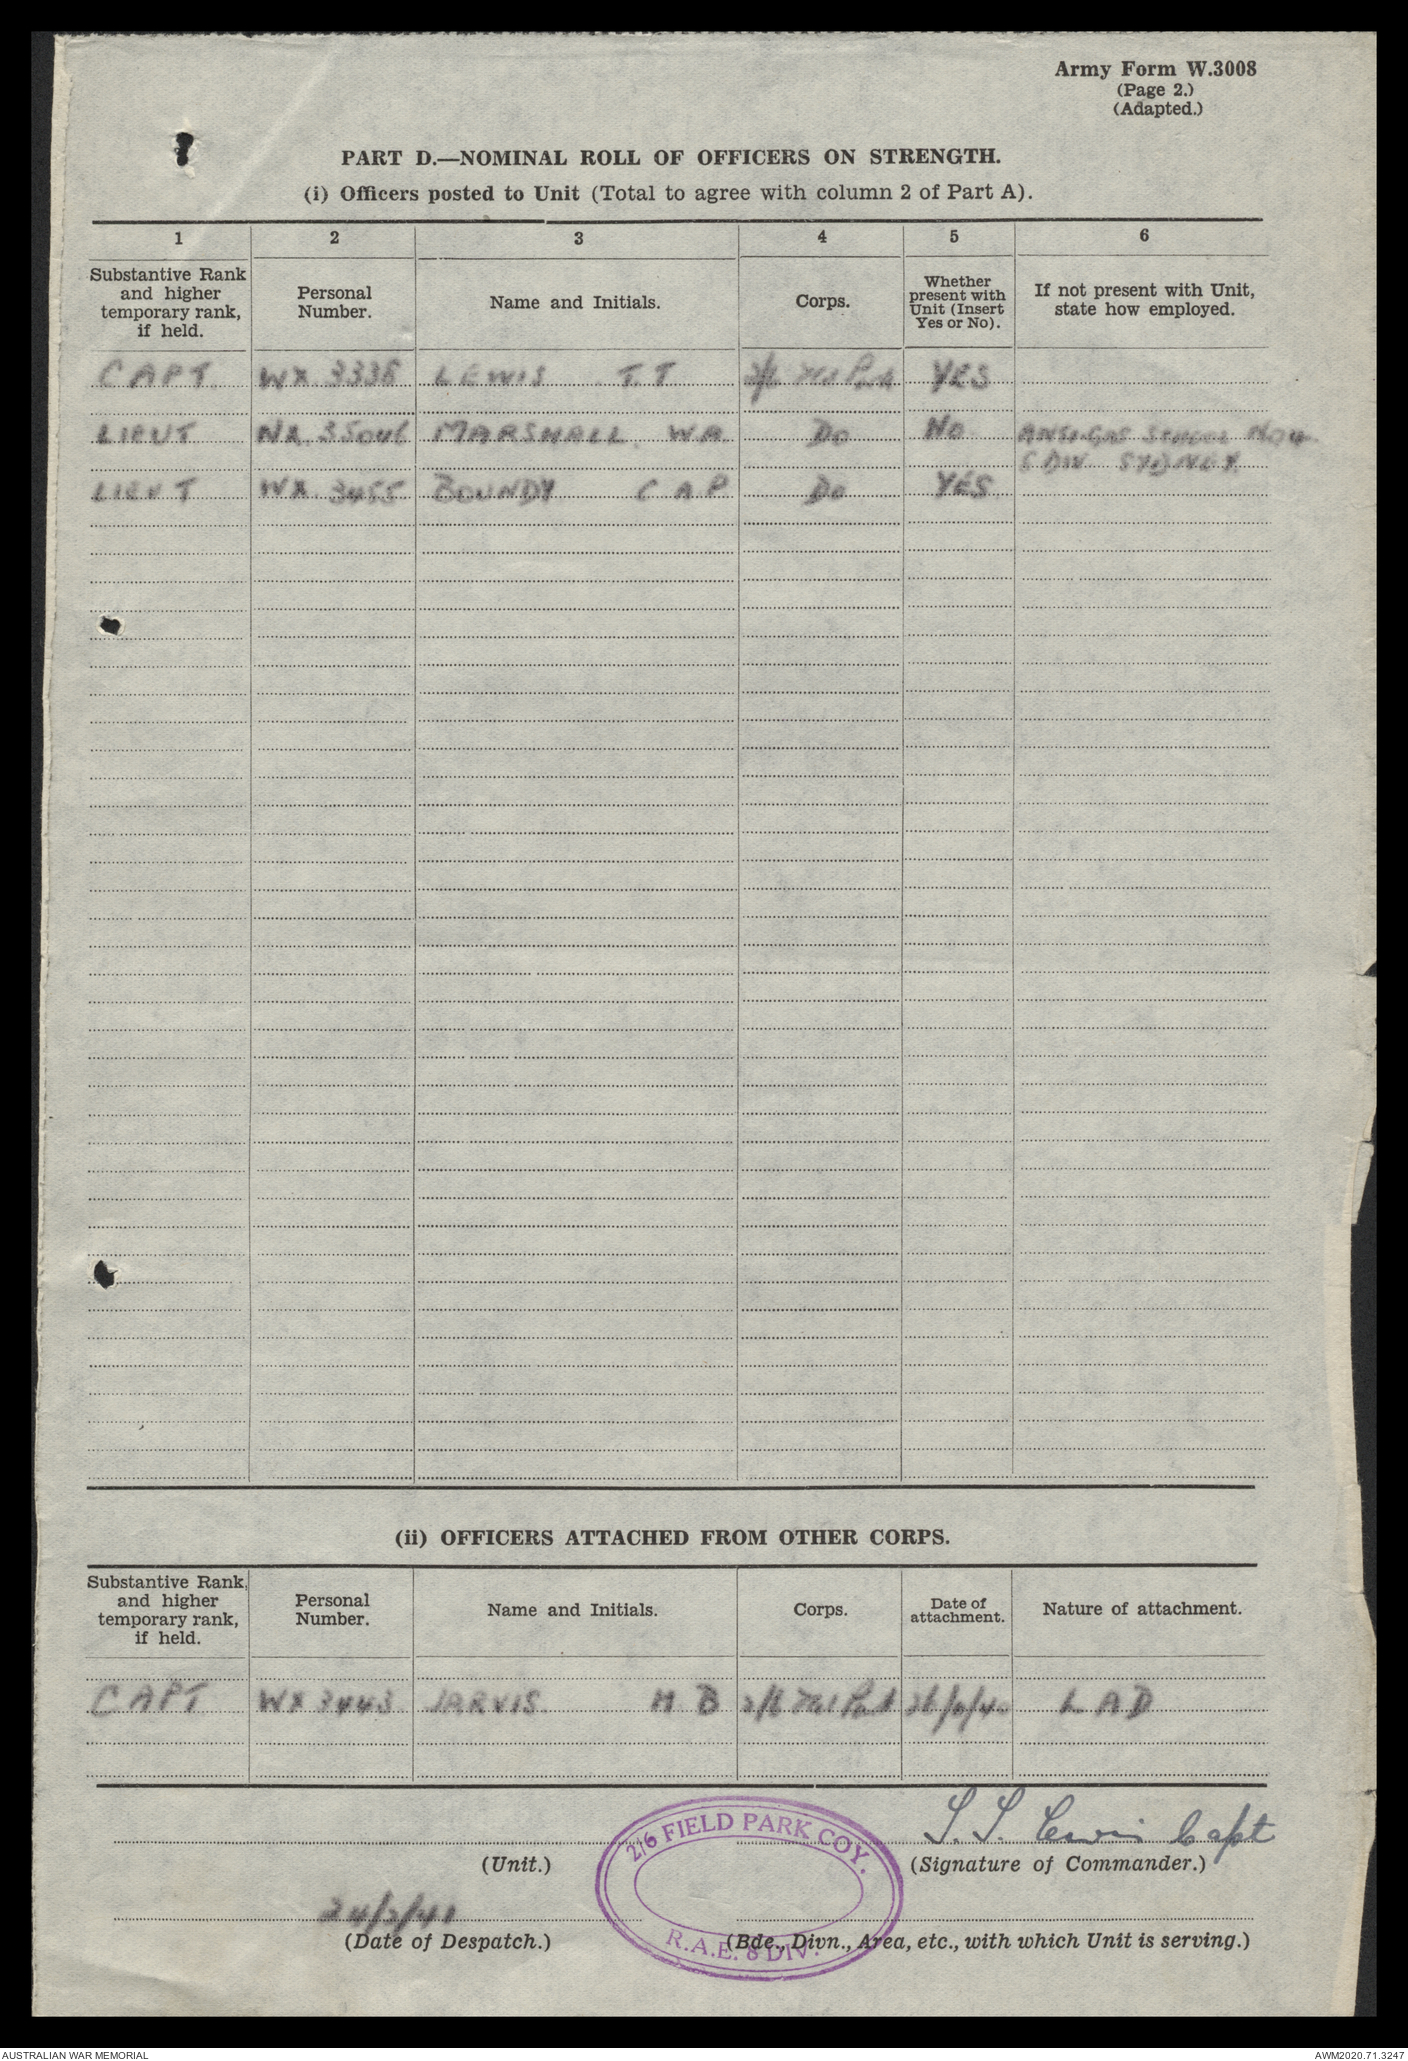 Army Form W.3008
(Page 2.)
(Adapted.)
PART D.—NOMINAL ROLL OF OFFICERS ON STRENGTH.
(i) Officers posted to Unit (Total to agree with column 2 of Part A).
1 2 3 4 5 6
Substantive Rank and higher temporary rank, if held. Personal Number. Name and Initials. Corps. Whether present with Unit (Insert Yes or No). If not present with Unit, state how employed.
CAPT. WX 3338 LEWIS T. T 2/6 Fld Park YES
LIEUT NX 35046 MARSHALL W A Do No ANTI-GAS SCHOOL No 4
E DIV SYDNEY
LIEUT WX 3455 BOUNDY C A P Do YES
(ii) OFFICERS ATTACHED FROM OTHER CORPS.
Substantive Rank, and higher temporary rank, if held. Personal Number. Name and Initials. Corps. Date of attachment. Nature of attachment.
CAPT WX 3443 JARVIS H B 2/6 Fld Park L A D
T. T. Lewis Capt
(Unit.) (Signature of Commander.)
2/6 FIELD PARK COY.
R.A.E. 8 DIV.
(Date of Despatch.) (Bde., Divn., Area, etc., with which Unit is serving.)
AUSTRALIAN WAR MEMORIAL AWM2020.71.3247